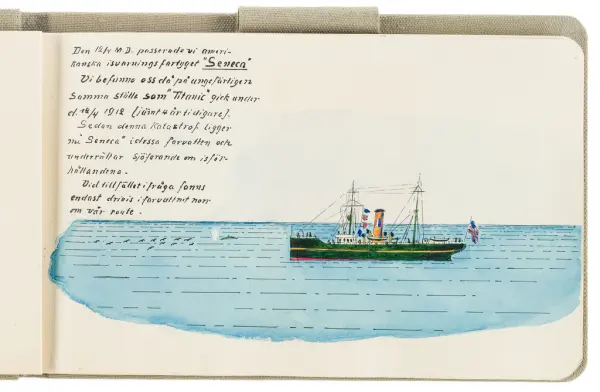 Den 15/4 M.D. passerade vi ameri-
kanska isvarningsfartyget "Seneca"
Vi befunno oss då på ungefärligen
samma ställe som "Titanic" gick under
d. 15/4 1912 (jämt 4 år tidigare).
Sedan denna katastrof ligger
nu "Seneca" i dessa farvatten och
underrättar sjöfarande om isför-
hållandena.
Vid tillfället i fråga fanns
endast drivis i farvattnet norr
om vår route.